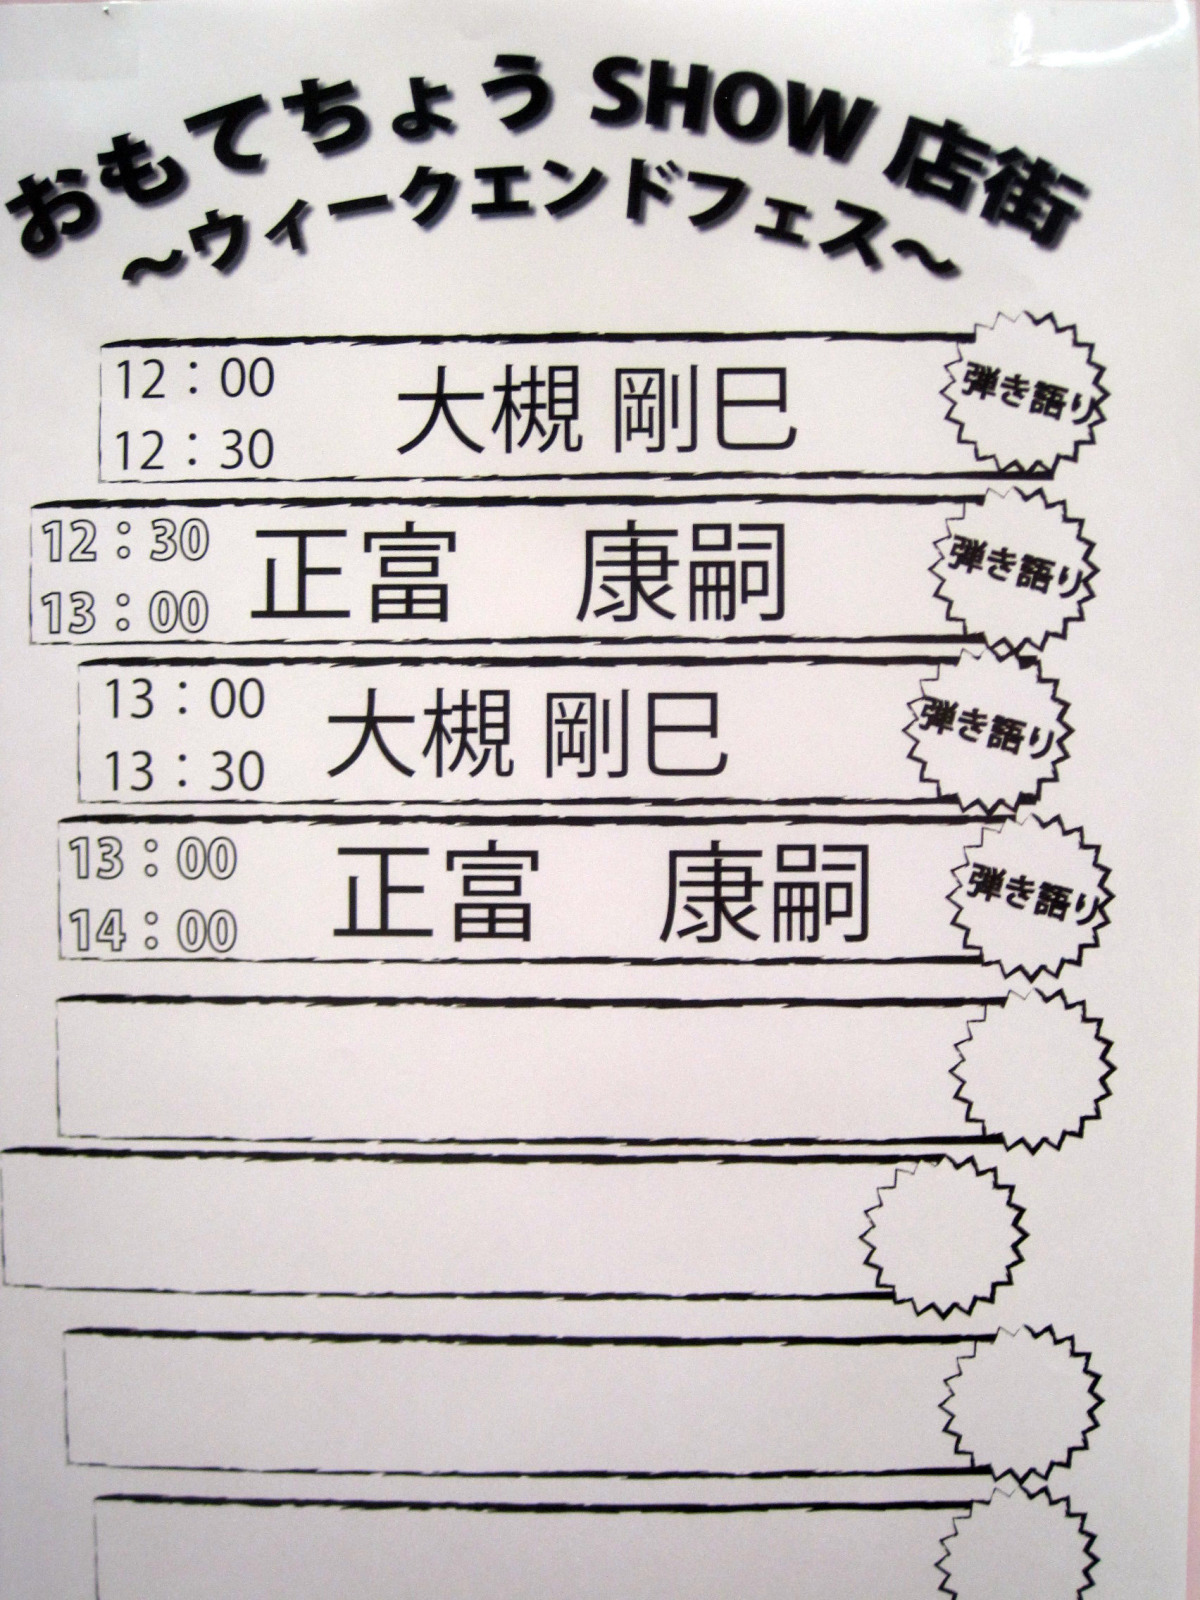 おもてちょう SHOW 店街
～ウィークエンドフェス～
12：00
12：30
大槻 剛巳
弾き語り
12：30
13：00
正富　康嗣
弾き語り
13：00
13：30
大槻 剛巳
弾き語り
13：00
14：00
正富　康嗣
弾き語り